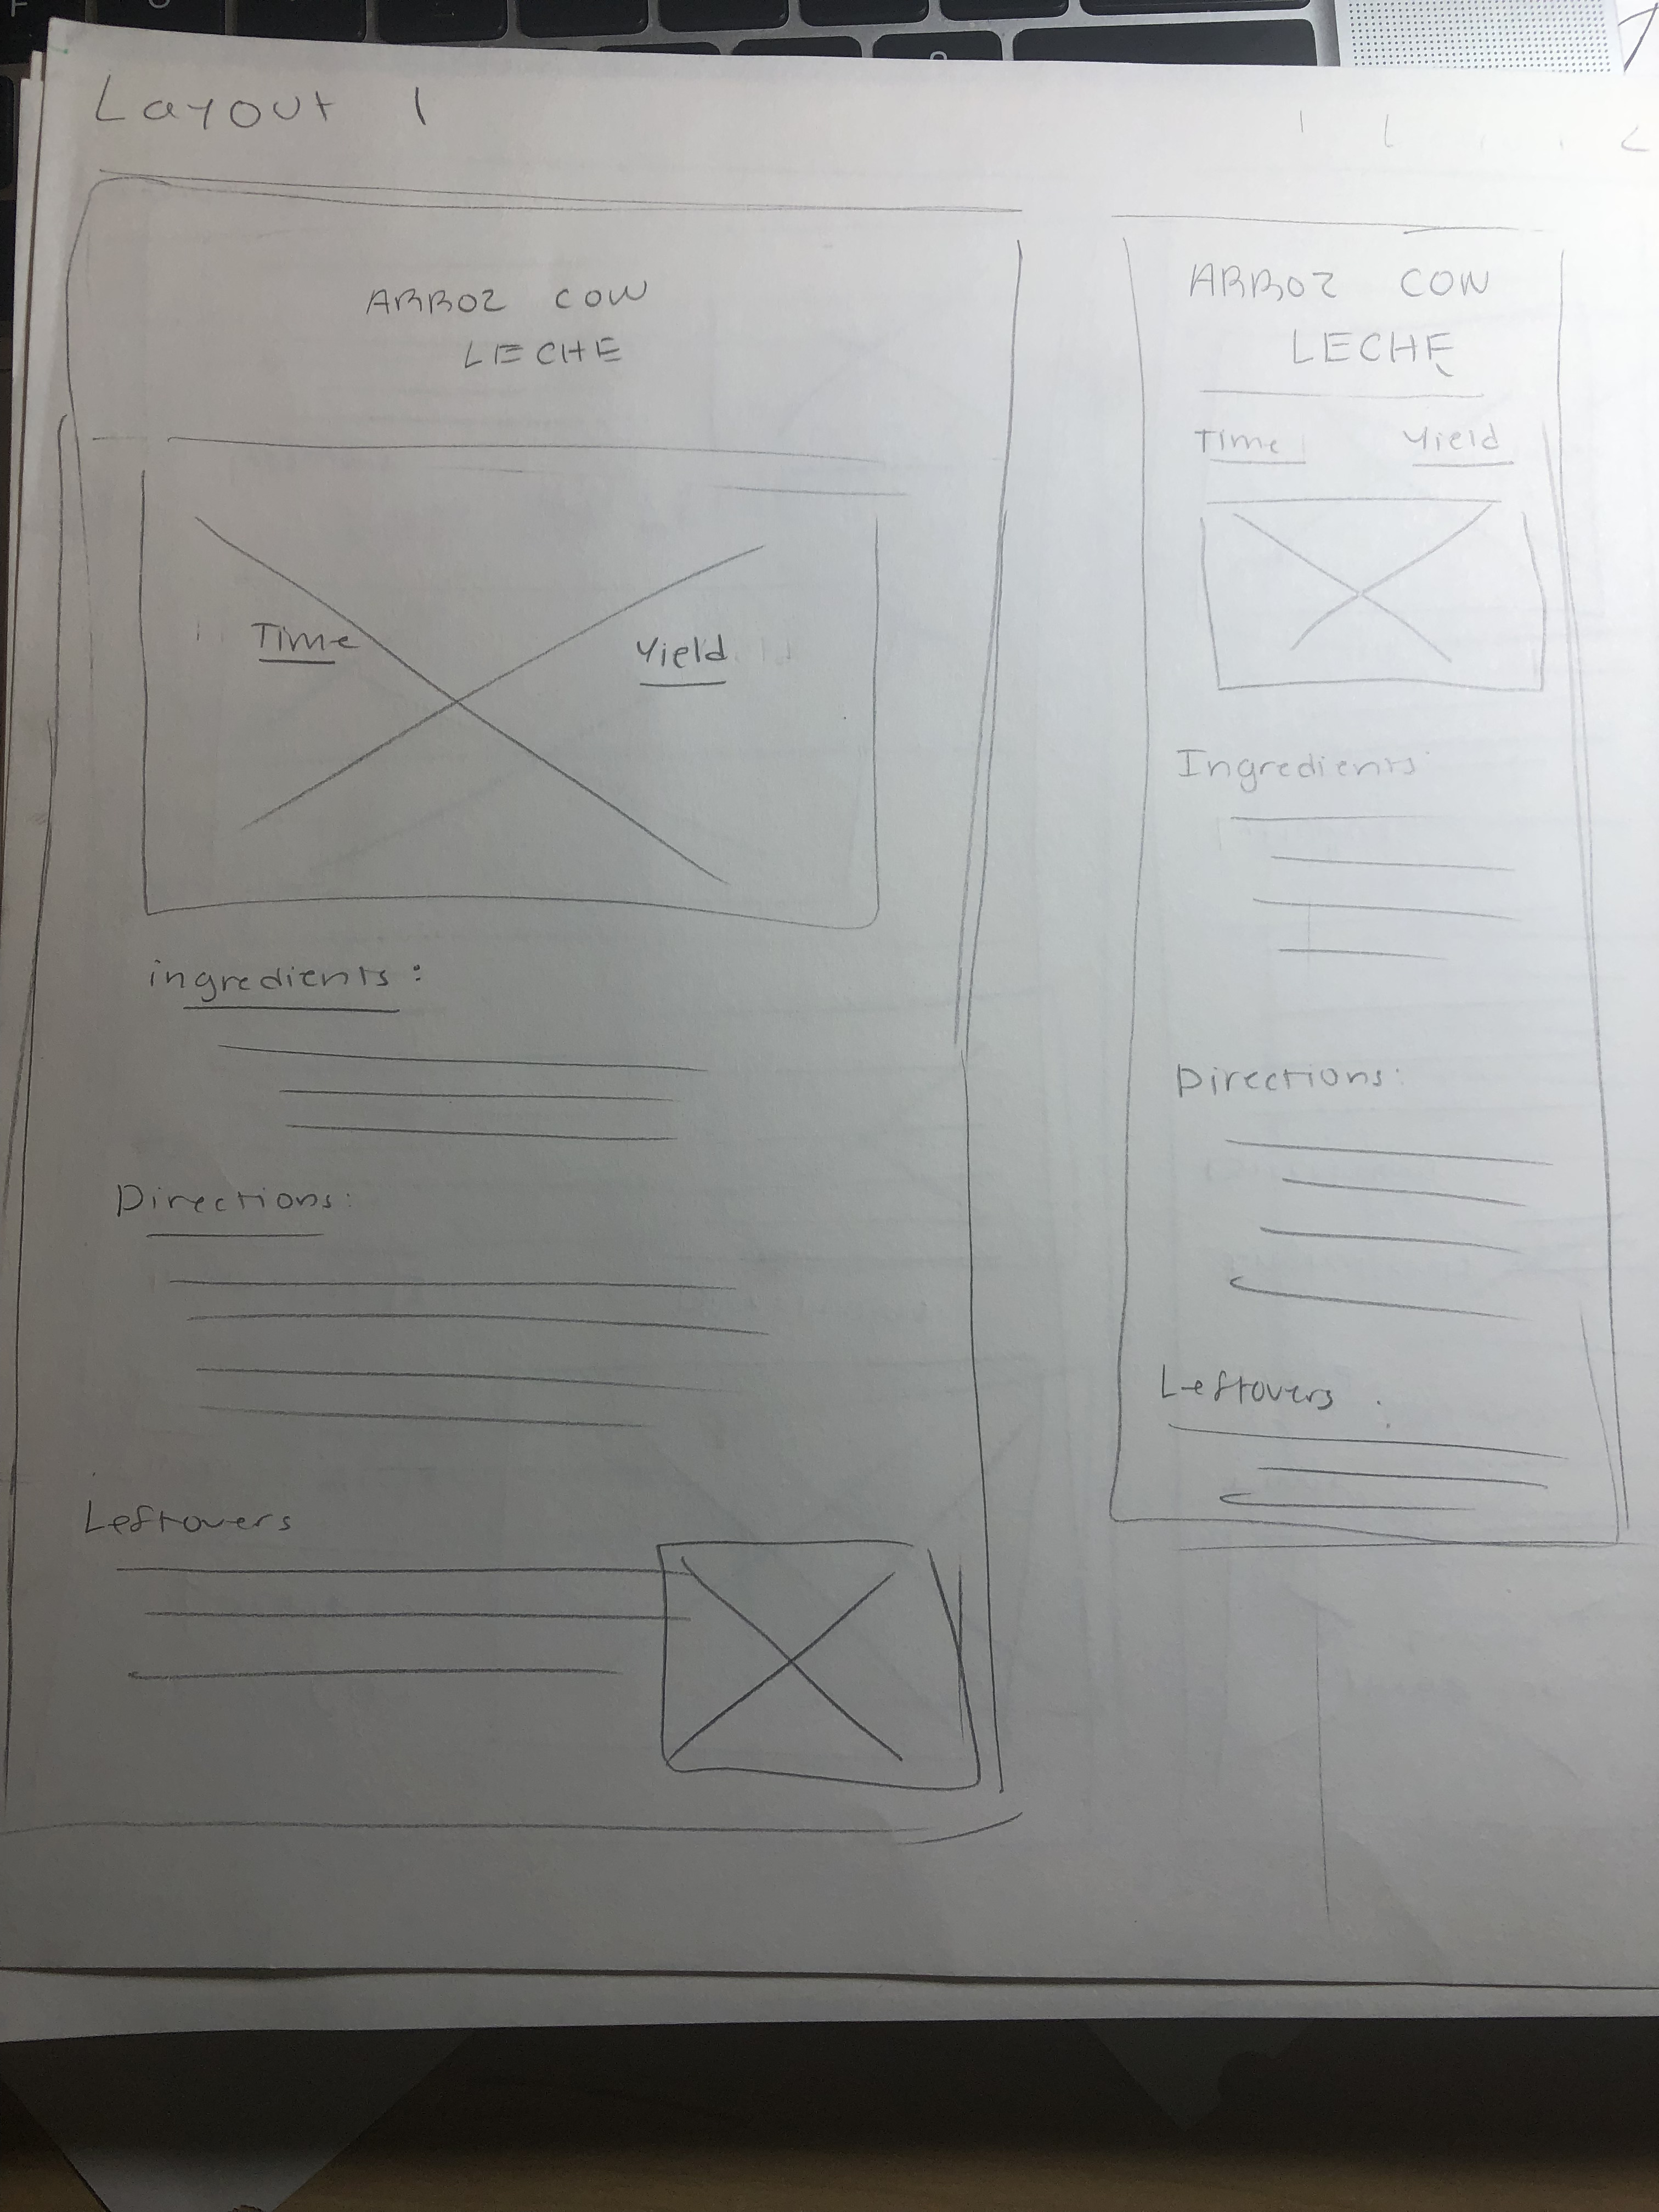 Layout 1
ARROZ CON
LECHE
Time
Yield
ingredients:
Directions:
Leftovers
ARROZ CON
LECHE
Time
Yield
Ingredients
Directions:
Leftovers: